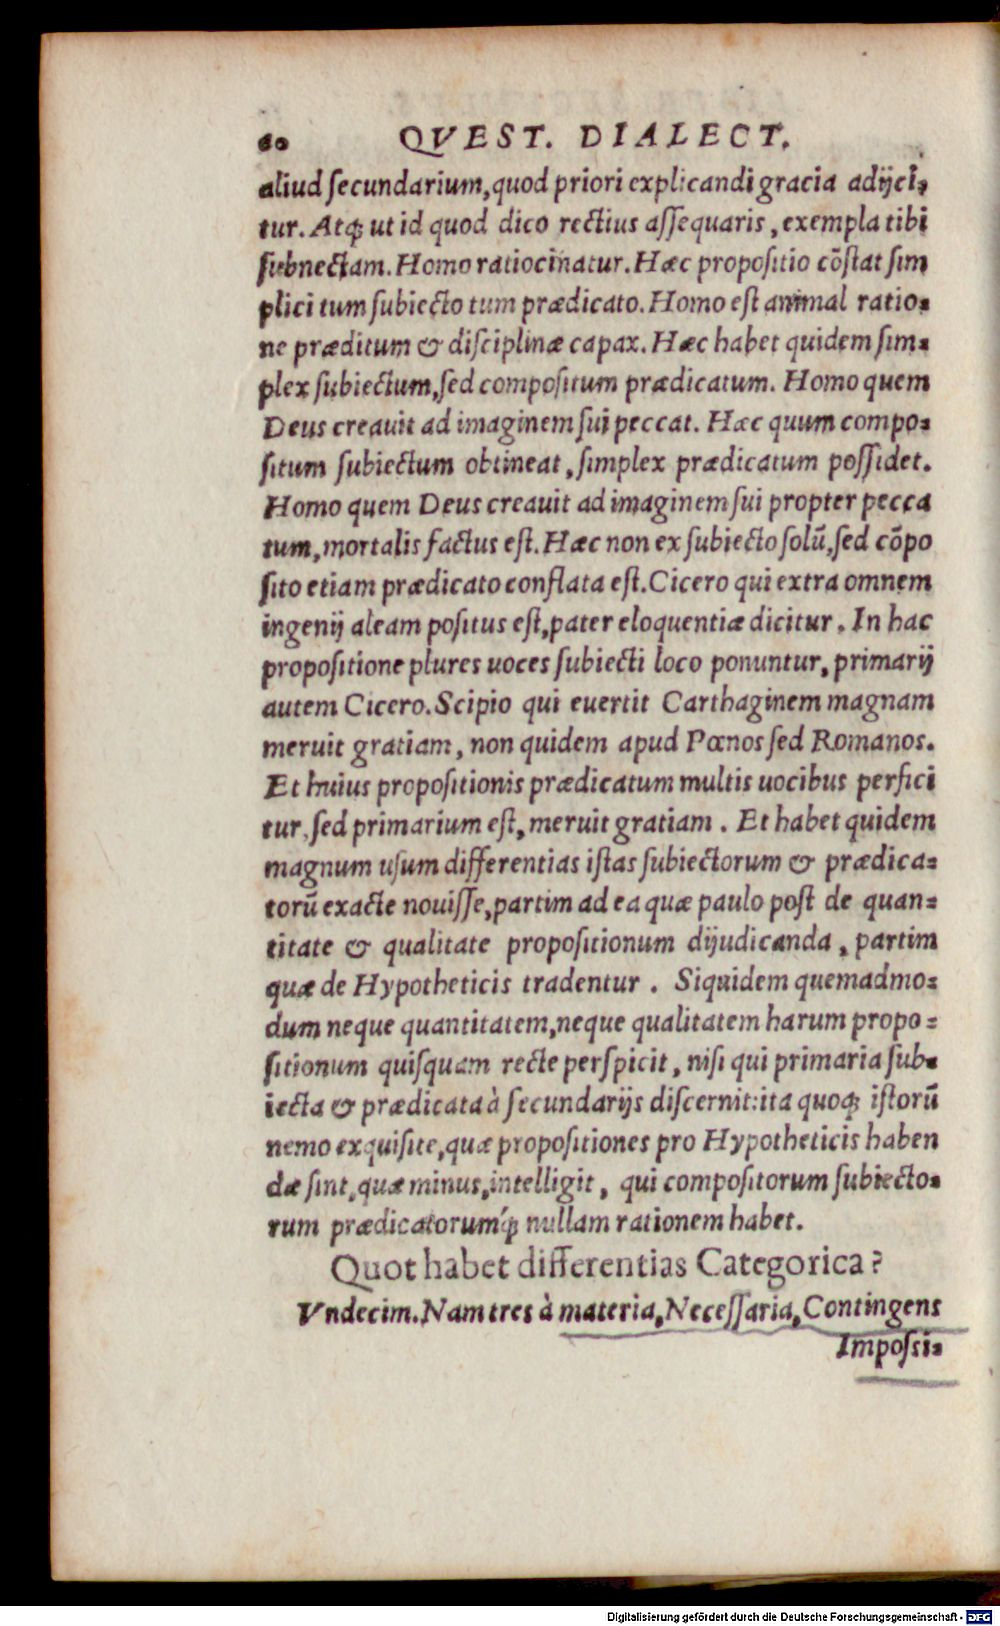 60 QVEST. DIALECT.
aliud ſecundarium, quod priori explicandi gracia adijci⸗
tur. Atqꝫ ut id quod dico rectius aſſequaris, exempla tibi
ſubnectam. Homo ratiocinatur. Hæc propoſitio cõſtat ſim
plici tum ſubiecto tum prædicato. Homo eſt animal ratio⸗
ne præditum & diſciplinæ capax. Hæc habet quidem ſim⸗
plex ſubiectum, ſed compoſitum prædicatum. Homo quem
Deus creauit ad imaginem ſui peccat. Hæc quum compo⸗
ſitum ſubiectum obtineat, ſimplex prædicatum poſſidet.
Homo quem Deus creauit ad imaginem ſui propter pecca
tum, mortalis factus eſt. Hæc non ex ſubiecto ſolũ, ſed cõpo
ſito etiam prædicato conflata eſt. Cicero qui extra omnem
ingenij aleam poſitus eſt, pater eloquentiæ dicitur. In hac
propoſitione plures uoces ſubiecti loco ponuntur, primarij
autem Cicero. Scipio qui euertit Carthaginem magnam
meruit gratiam, non quidem apud Pœnos ſed Romanos.
Et huius propoſitionis prædicatum multis uocibus perfici
tur, ſed primarium eſt, meruit gratiam. Et habet quidem
magnum uſum differentias iſtas ſubiectorum & prædica⸗
torũ exacte nouiſſe, partim ad ea quæ paulo poſt de quan⸗
titate & qualitate propoſitionum dijudicanda, partim
quæ de Hypotheticis tradentur. Siquidem quemadmo⸗
dum neque quantitatem, neque qualitatem harum propo⸗
ſitionum quiſquam recte perſpicit, niſi qui primaria ſub⸗
iecta & prædicata à ſecundarijs diſcernit: ita quoqꝫ iſtorũ
nemo exquiſite, quæ propoſitiones pro Hypotheticis haben
dæ ſint, quæ minus, intelligit, qui compoſitorum ſubiecto⸗
rum prædicatorumqꝫ́ nullam rationem habet.
Quot habet differentias Categorica?
Vndecim. Nam tres à materia, Neceſſaria, Contingens
Impoſsi⸗
Digitalisierung gefördert durch die Deutsche Forschungsgemeinschaft - DFG